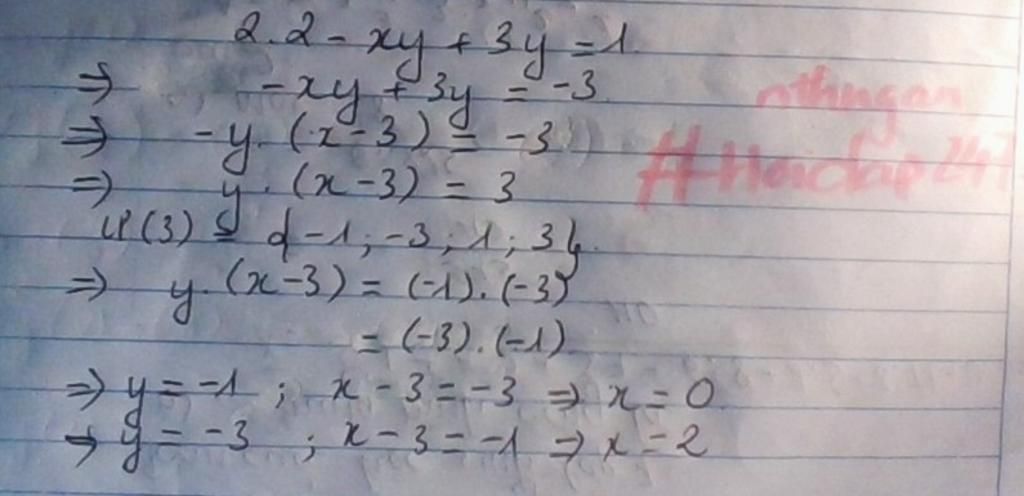 2.2 - xy + 3y = 1
⇒ -xy + 3y = -3
⇒ -y. (x-3) = -3
⇒ y. (x-3) = 3
Ư(3) = {-1; -3; 1; 3}.
⇒ y. (x-3) = (-1). (-3)
= (-3). (-1)
⇒ y = -1 ; x - 3 = -3 ⇒ x = 0
→ y = -3 ; x - 3 = -1 ⇒ x = 2
nthngan
#Hoidap247